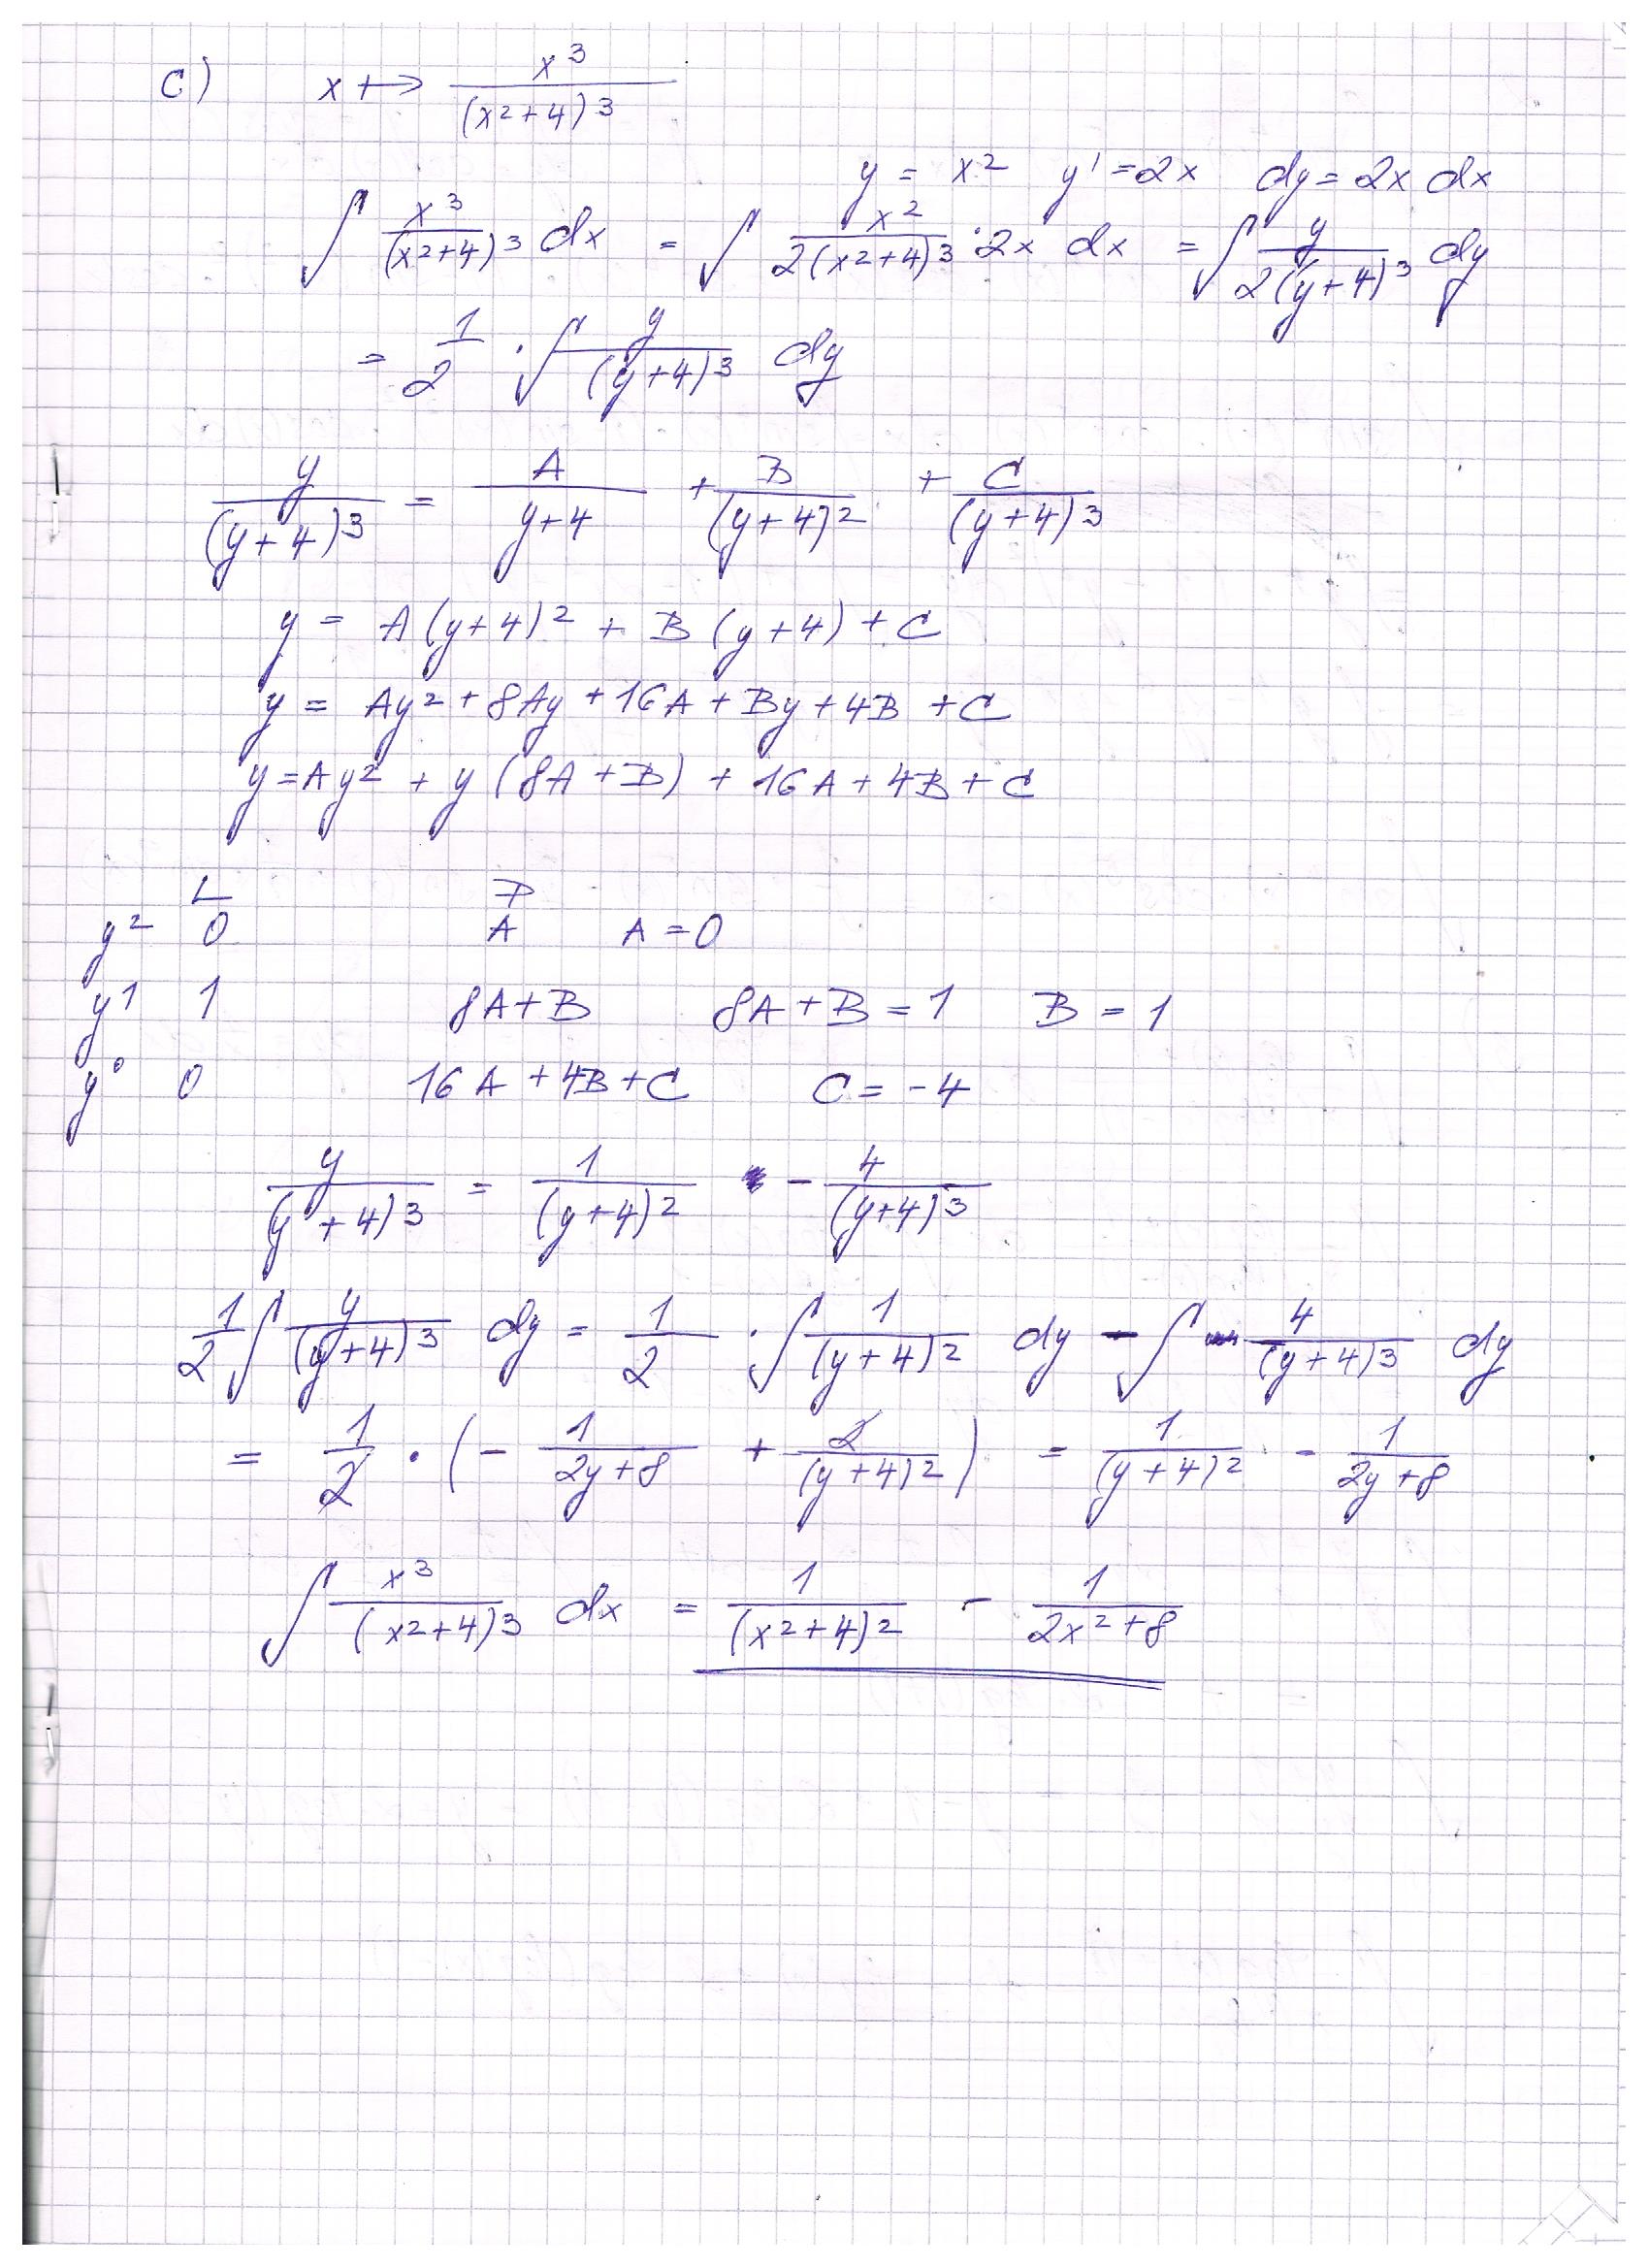 c) x ↦ x³/(x²+4)³
y = x² y' = 2x dy = 2x dx
∫ x³/(x²+4)³ dx = ∫ x²/(2(x²+4)³) · 2x dx = ∫ y/(2(y+4)³) dy
= 1/2 · ∫ y/(y+4)³ dy
y/(y+4)³ = A/(y+4) + B/(y+4)² + C/(y+4)³
y = A(y+4)² + B(y+4) + C
y = Ay² + 8Ay + 16A + By + 4B + C
y = Ay² + y(8A+B) + 16A + 4B + C
L P
y² 0 A A = 0
y¹ 1 8A+B 8A+B = 1 B = 1
y⁰ 0 16A+4B+C C = -4
y/(y+4)³ = 1/(y+4)² - 4/(y+4)³
1/2 ∫ y/(y+4)³ dy = 1/2 · ∫ 1/(y+4)² dy - ∫ 4/(y+4)³ dy
= 1/2 · (- 1/(2y+8) + 2/(y+4)²) = 1/(y+4)² - 1/(2y+8)
∫ x³/(x²+4)³ dx = 1/(x²+4)² - 1/(2x²+8)